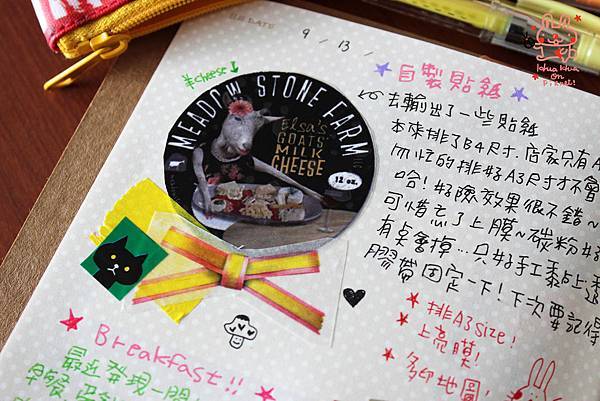 DATE
9 / 13 /
Khua Khua
on
Planet!
羊cheese
MEADOW STONE FARM
ELSA'S
GOATS
MILK
CHEESE
12 oz.
自製貼紙
去輸出了一些貼紙
本來排了B4尺寸,店家只有A
的排好A3尺寸才不會
哈!好險效果很不錯~
可惜忘了上膜~碳粉
有點會掉…只好手工黏上透
膠帶固定一下!下次要記得
排A3size!
上亮膜!
多印地圖!
Breakfast!!
最近發現一間
早餐